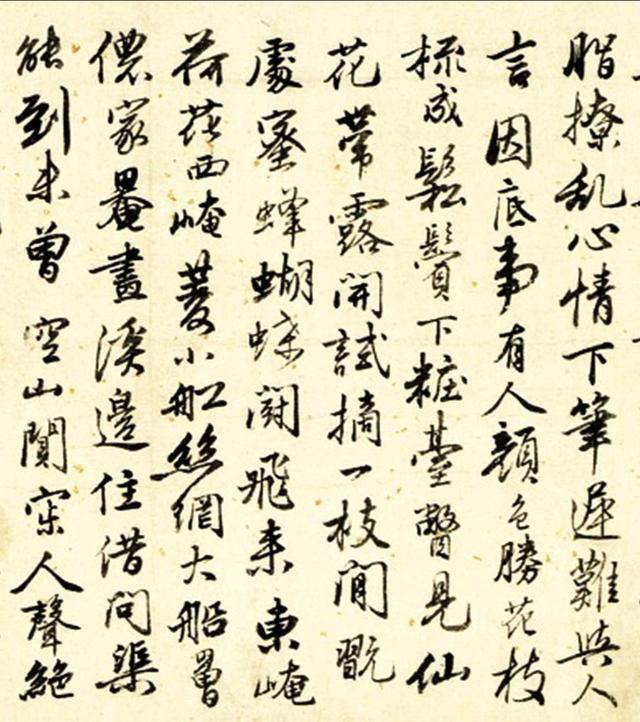 脂撩乱心情下筆遲難與人
言因底事有人顏色勝花枝
梳成鬆鬢下粧臺瞥見仙
花帶露開試摘一枝閒翫
處蜜蜂蝴蝶鬪飛来東崦
荷花西崦菱小舩絲網大船罾
儂家罨畫溪邊住借問渠
能到未曾空山闃寂人聲絕